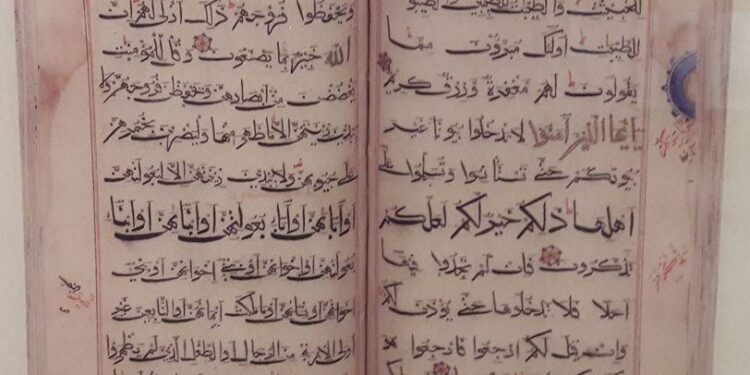 للخبيثت والطيبت للطيبين والطيبون
للطيبات اولئك مبرؤن مما
يقولون لهم مغفرة ورزق كريم
يايها الذين امنوا لا تدخلوا بيوتا غير
بيوتكم حتى تستانسوا وتسلموا على
اهلها ذلكم خير لكم لعلكم
تذكرون فان لم تجدوا فيها
احدا فلا تدخلوها حتى يؤذن لكم
وان قيل لكم ارجعوا فارجعوا
ويحفظوا فروجهم ذلك ازكى لهم ان
الله خبير بما يصنعون وقل للمؤمنت
يغضضن من ابصارهن ويحفظن فروجهن ولا
يبدين زينتهن الا ما ظهر منها وليضربن بخمرهن
على جيوبهن ولا يبدين زينتهن الا لبعولتهن
او ابائهن او اباء بعولتهن او ابنائهن او ابناء
بعولتهن او اخوانهن او بني اخوانهن او بني
اخواتهن او نسائهن او ما ملكت ايمانهن او التابعين غير
اولى الاربة من الرجال او الطفل الذين لم يظهروا